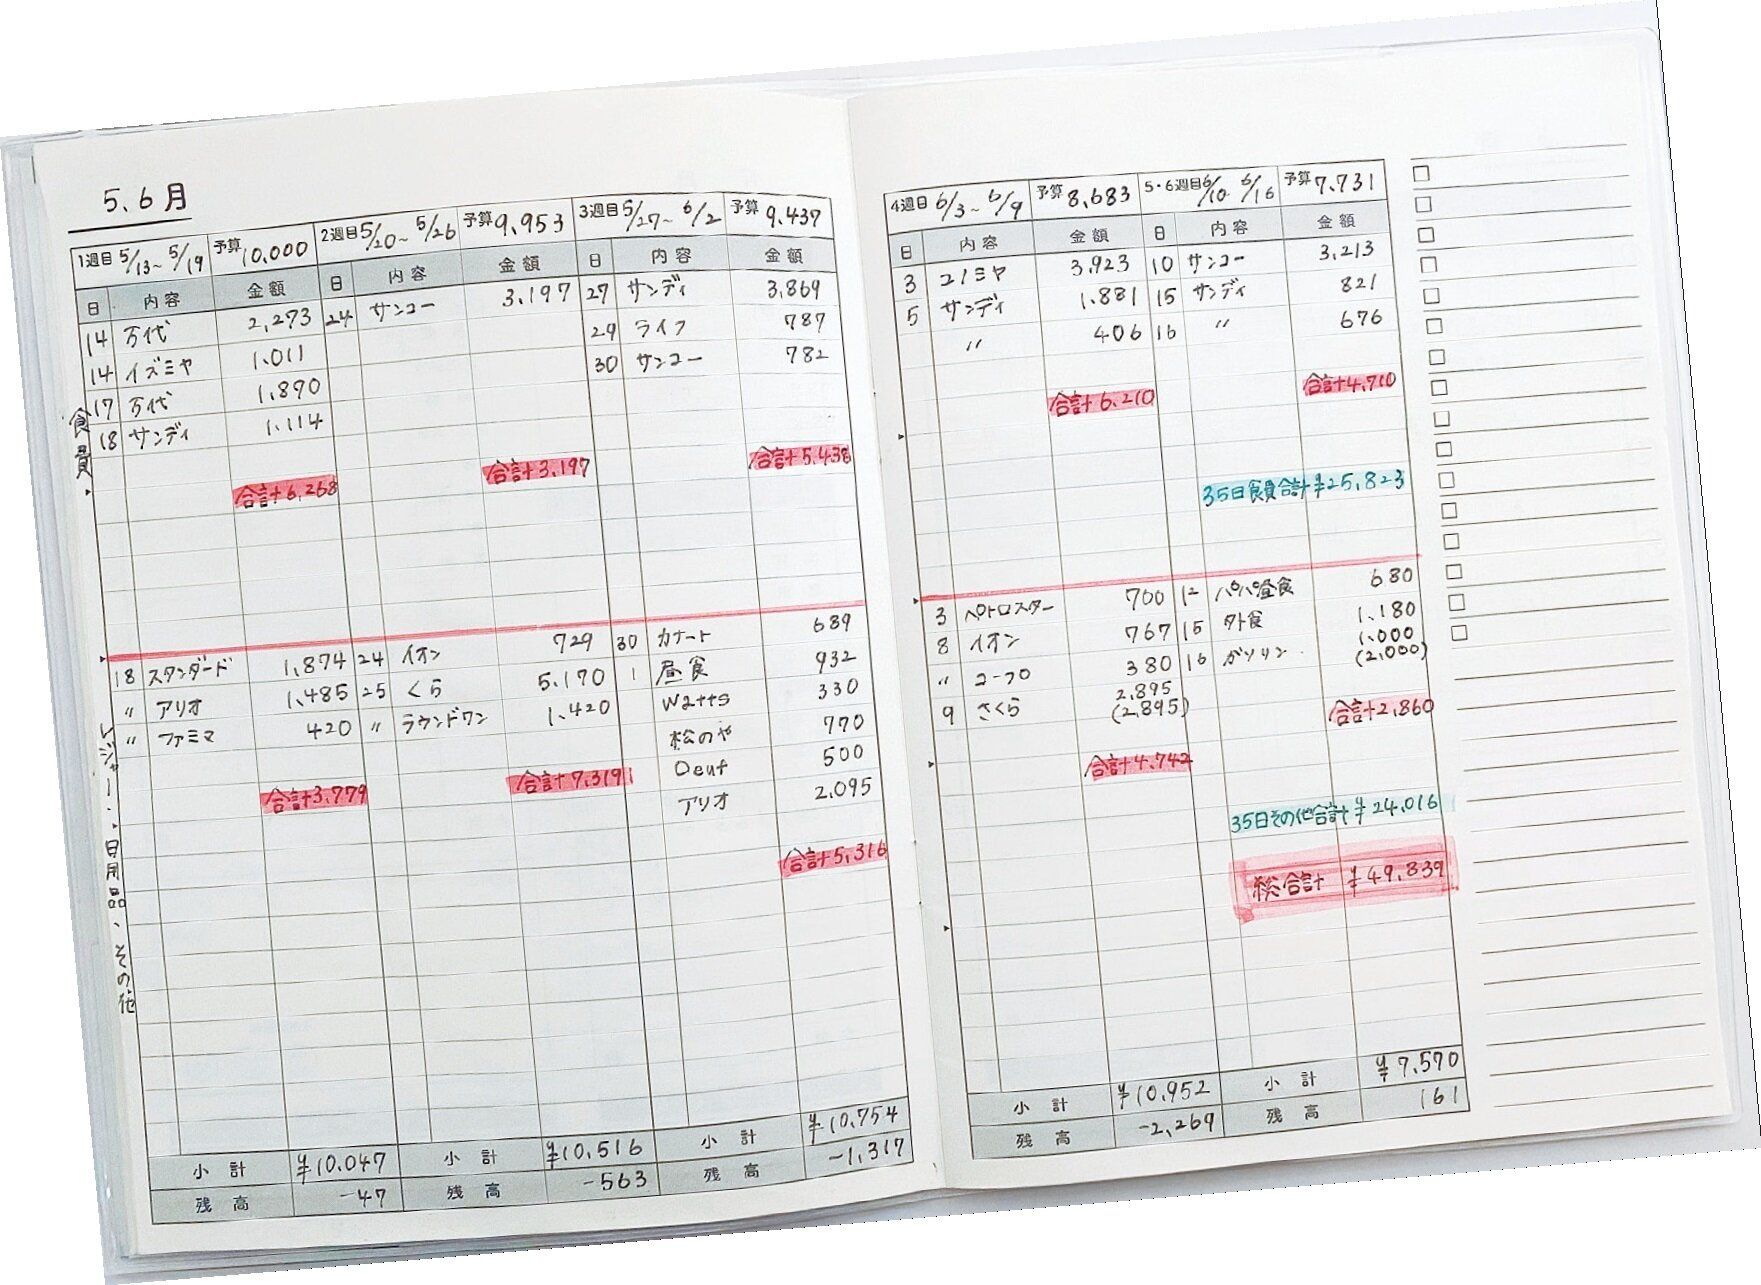 5、6月
1週目 5/13~5/19 予算10,000 2週目 5/20~5/26 予算9,953 3週目 5/27~6/2 予算9,437
日 内容 金額 日 内容 金額 日 内容 金額
14 万代 2,273 24 サンコー 3,197 27 サンディ 3,869
14 イズミヤ 1,011 29 ライフ 787
17 万代 1,870 30 サンコー 782
18 サンディ 1,114
合計6,268 合計3,197 合計5,438
食費・
18 スタンダード 1,874 24 イオン 729 30 カナート 689
〃 アリオ 1,485 25 くら 5,170 1 昼食 932
〃 ファミマ 420 〃 ラウンドワン 1,420 Watts 330
松のや 770
500
アリオ 2,095
合計3,779 合計7,319 合計5,316
レジャー・日用品、その他
小計 ¥10,047 小計 ¥10,516 小計 ¥10,754
残高 -47 残高 -563 残高 -1,317
4週目 6/3~6/9 予算8,683 5・6週目 6/10 6/16 予算7,731
日 内容 金額 日 内容 金額
3 コノミヤ 3,923 10 サンコー 3,213
5 サンディ 1,881 15 サンディ 821
〃 406 16 〃 676
合計6,210 合計4,710
35日食費合計¥25,823
3 ペトロスター 700 12 パパ昼食 680
8 イオン 767 15 外食 1,180
〃 コープ 380 16 ガソリン 1,000 (2,000)
9 さくら 2,895 (2,895)
合計2,860
合計4,742
35日その他合計¥24,016
総合計 ¥49,839
小計 ¥10,952 小計 ¥7,570
残高 -2,269 残高 161